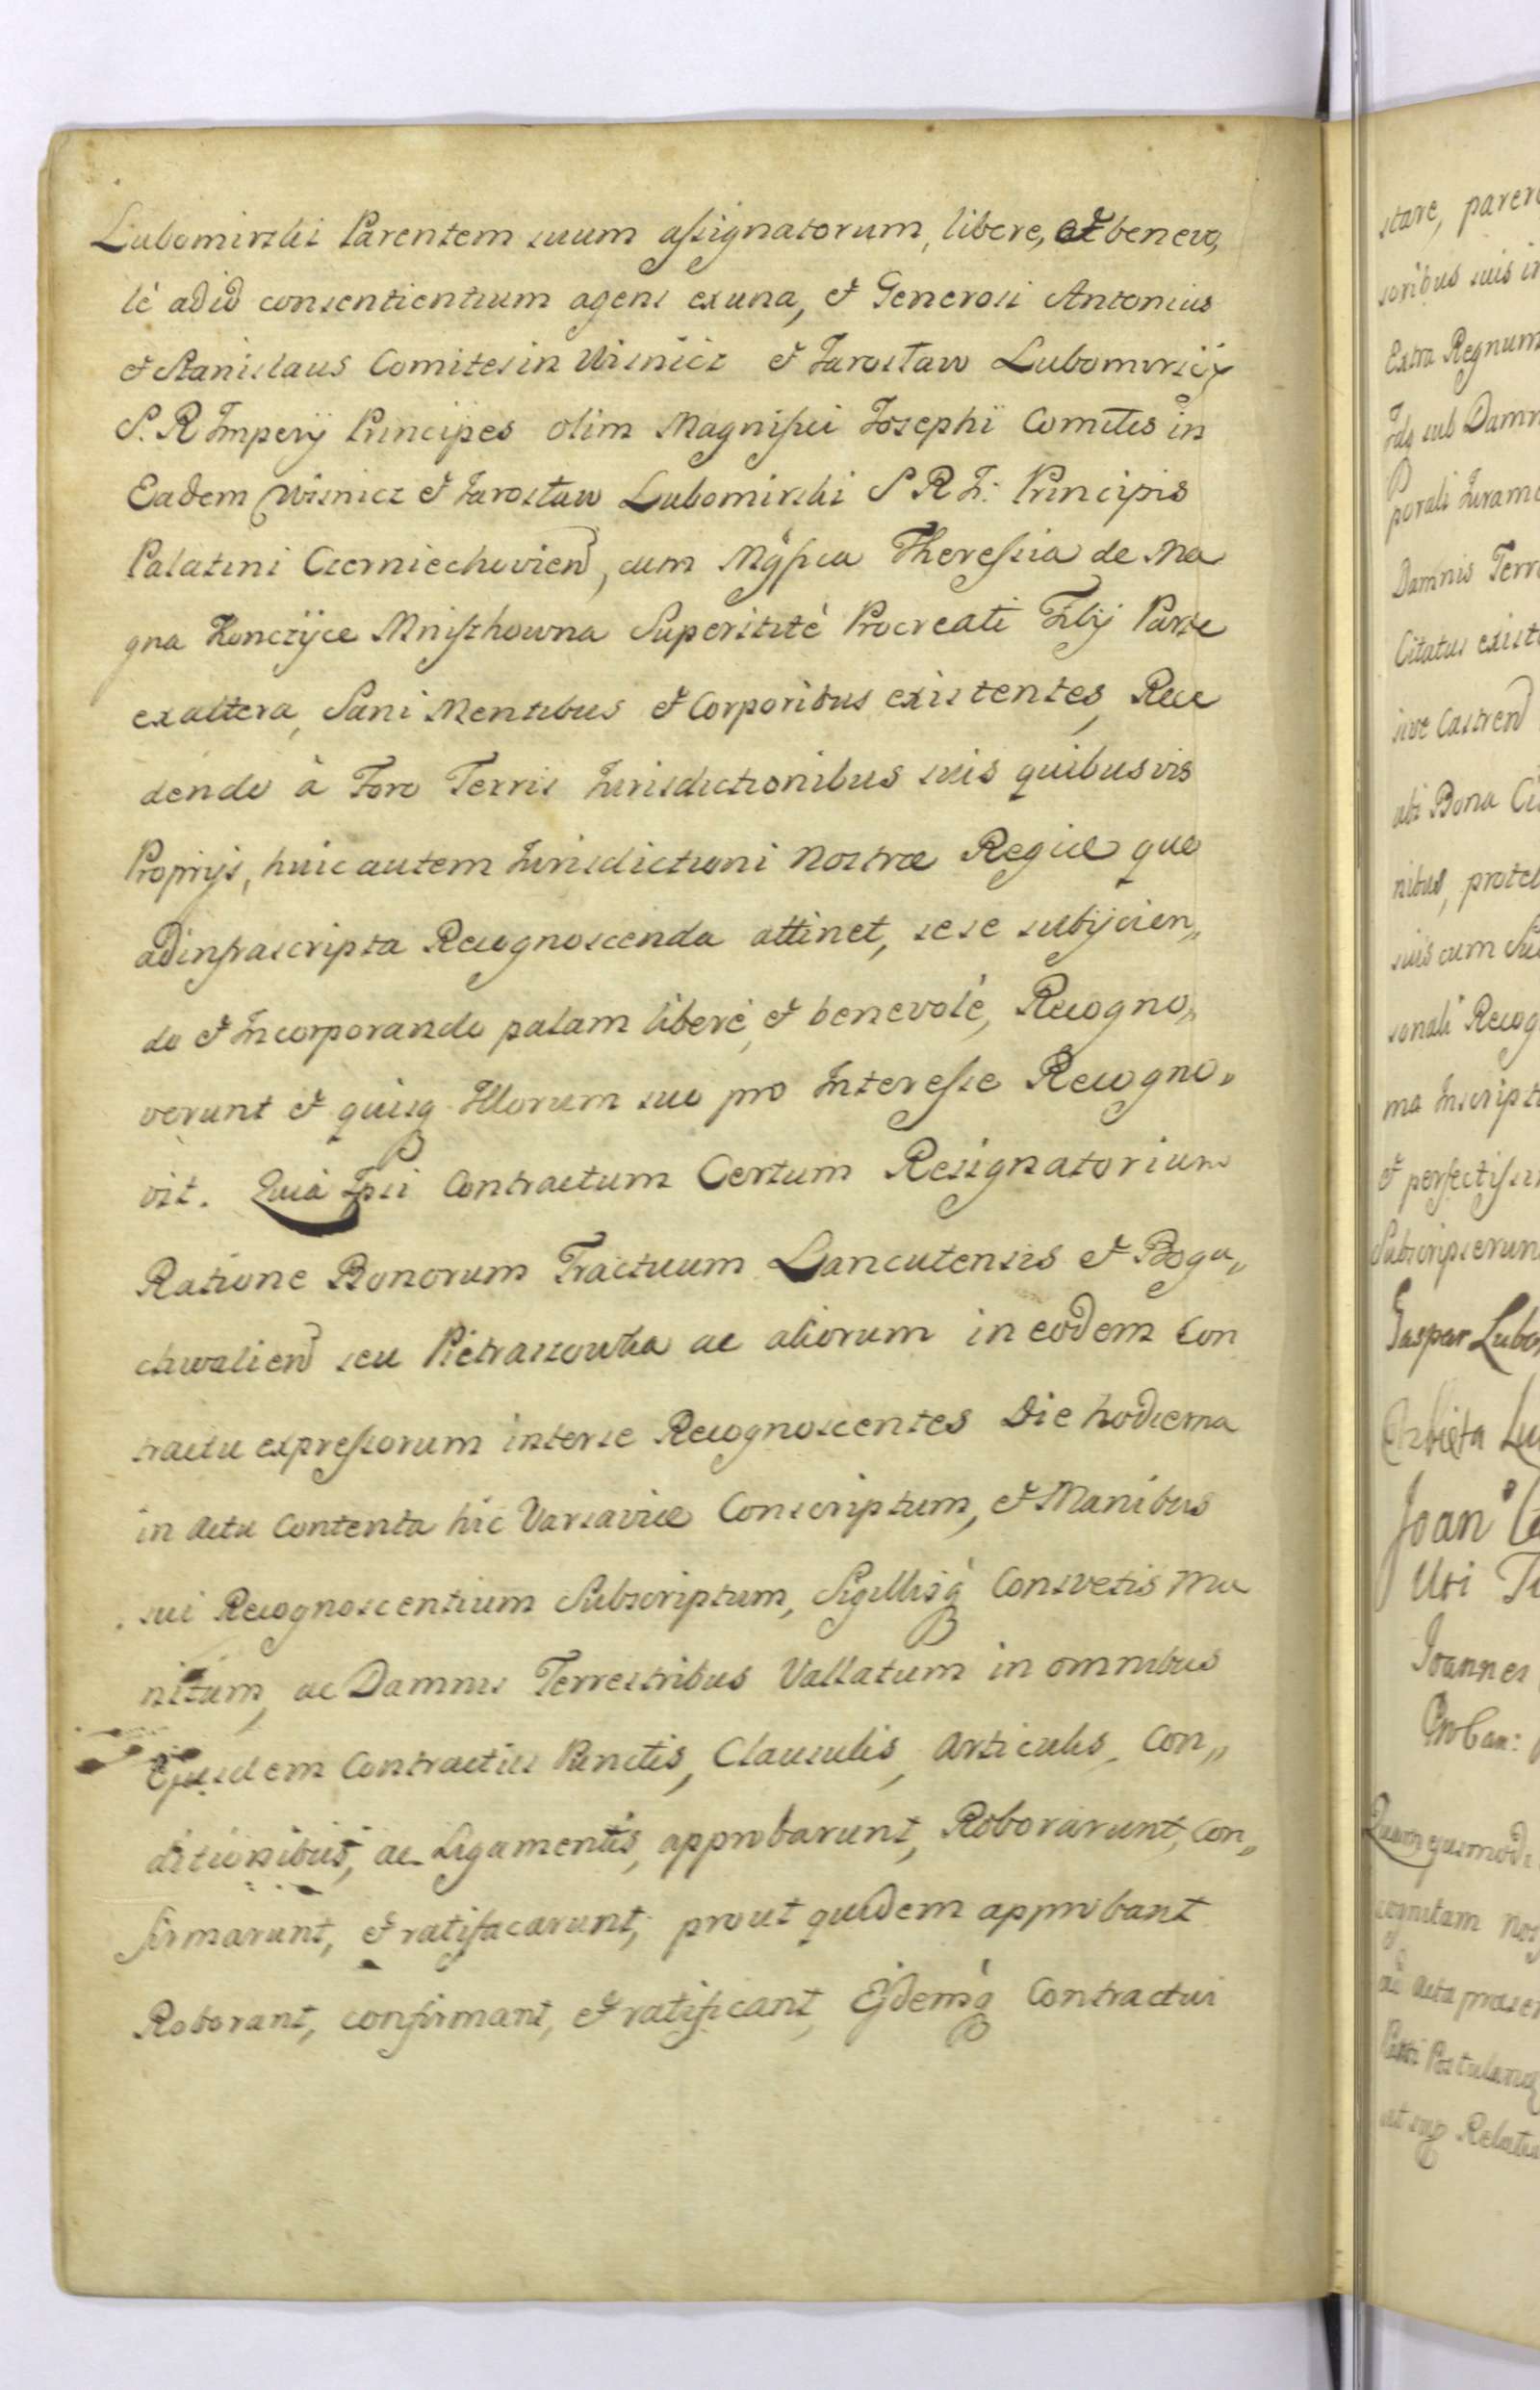 Lubomirski Parentem suum assignatorum, libere, et benevo„
lè ad id consentientium agens ex una, et Generosi Antonius
et Stanislaus Comites in Wisnicz et Jarosław Lubomirscÿ
S. R Imperÿ Principes olim Magnifici Josephi Comitis in
Eadem Wisnicz et Jarosław Lubomirski S R I: Principis
Palatini Czerniechovien, cum Mgfica Theressia de Ma
gna Konczÿce Mniszchowna Superstité Procreati Filÿ Parte
ex altera, Sani Mentibus et Corporibus existentes, Rece
dendo à Foro Terris Jurisdictionibus suis quibusvis
Proprÿs, huic autem Jurisdictioni Nostræ Regiæ quo
ad infrascripta Recognoscenda attinet, sese subÿcien„
do et Incorporando palam liberè, et benevolè, Recogno„
verunt et quisq Illorum suo pro Interesse Recogno„
vit. Quia Ipsi Contractum Certum Resignatorium
Ratione Bonorum Tractuum Lancutensis et Bogu„
chwalien seu Pietraszowka ac aliorum in eodem Con
tractu expressorum inter se Recognoscentes Die hodierna
in Actu Contenta hic Varsaviæ Conscriptum, et Manibus
sui Recognoscentium Subscriptum, Sigillisq Consvetis Mu
nitum, ac Damnis Terrestribus Vallatum in omnibus
Ejusdem Contractus Punctis, Clausulis, Articulis, Con„
ditionibus, ac Ligamentis, approbarunt, Roborarunt, Con„
firmarunt, et ratificarunt, prout quidem approbant
Roborant, confirmant, et ratificant, Ejdemq Contractui
stare, parere
soribus suis in
Extra Regnum
sub Damn
porali Jurame
Damnis Terre
Citatus existe
sive Castren
ubi Bona
nibus,
suis cum
sonali Recog
ma Inscript
et perfectissi
Subscripserun
Gaspar Lubo
Joan
Joannes
ejusmodi
cognitam Nos
ad Acta præsen
Postulan
Relatio